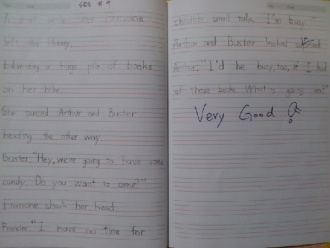 let's see things,
balancing a huge pile of books
on her bike.
She passed Arthur and Buster
heading the other way.
Buster; "Hey, we're going to have some
candy. Do you want to come?"
Francine shook her head.
Francine; "I have no time for
small talk. I'm busy."
Arthur and Buster looked
Arthur; "I'd be busy, too, if I had
all those books. What's going on?"
Very Good